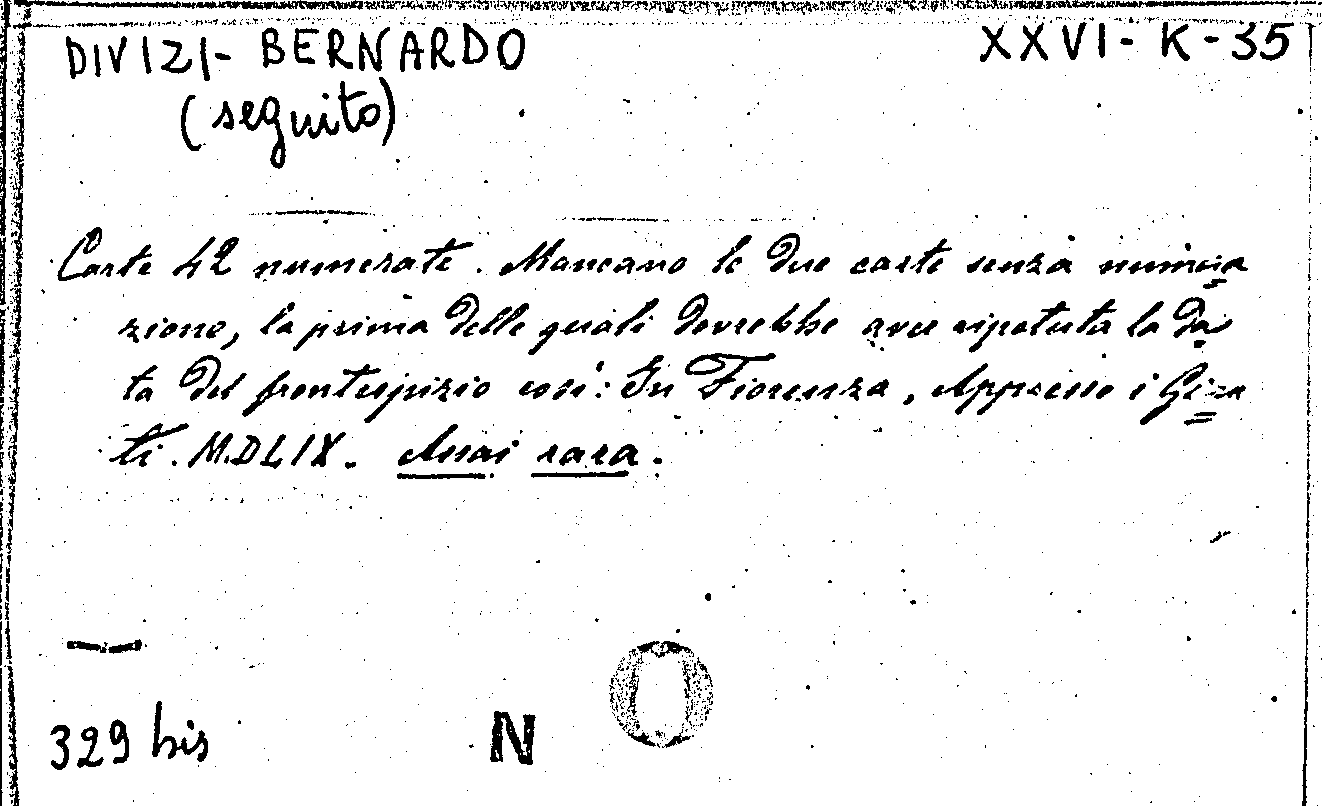 DIVIZI- BERNARDO XXVI- K-35
(seguito)
Carte 42 numerate. Mancano le due carte senza numera=
zione, la prima delle quali dovrebbe aver ripetuta la da=
ta del frontespizio così: In Fiorenza, Appresso i Giun=
ti. MDLIX. Assai rara.
329 bis N